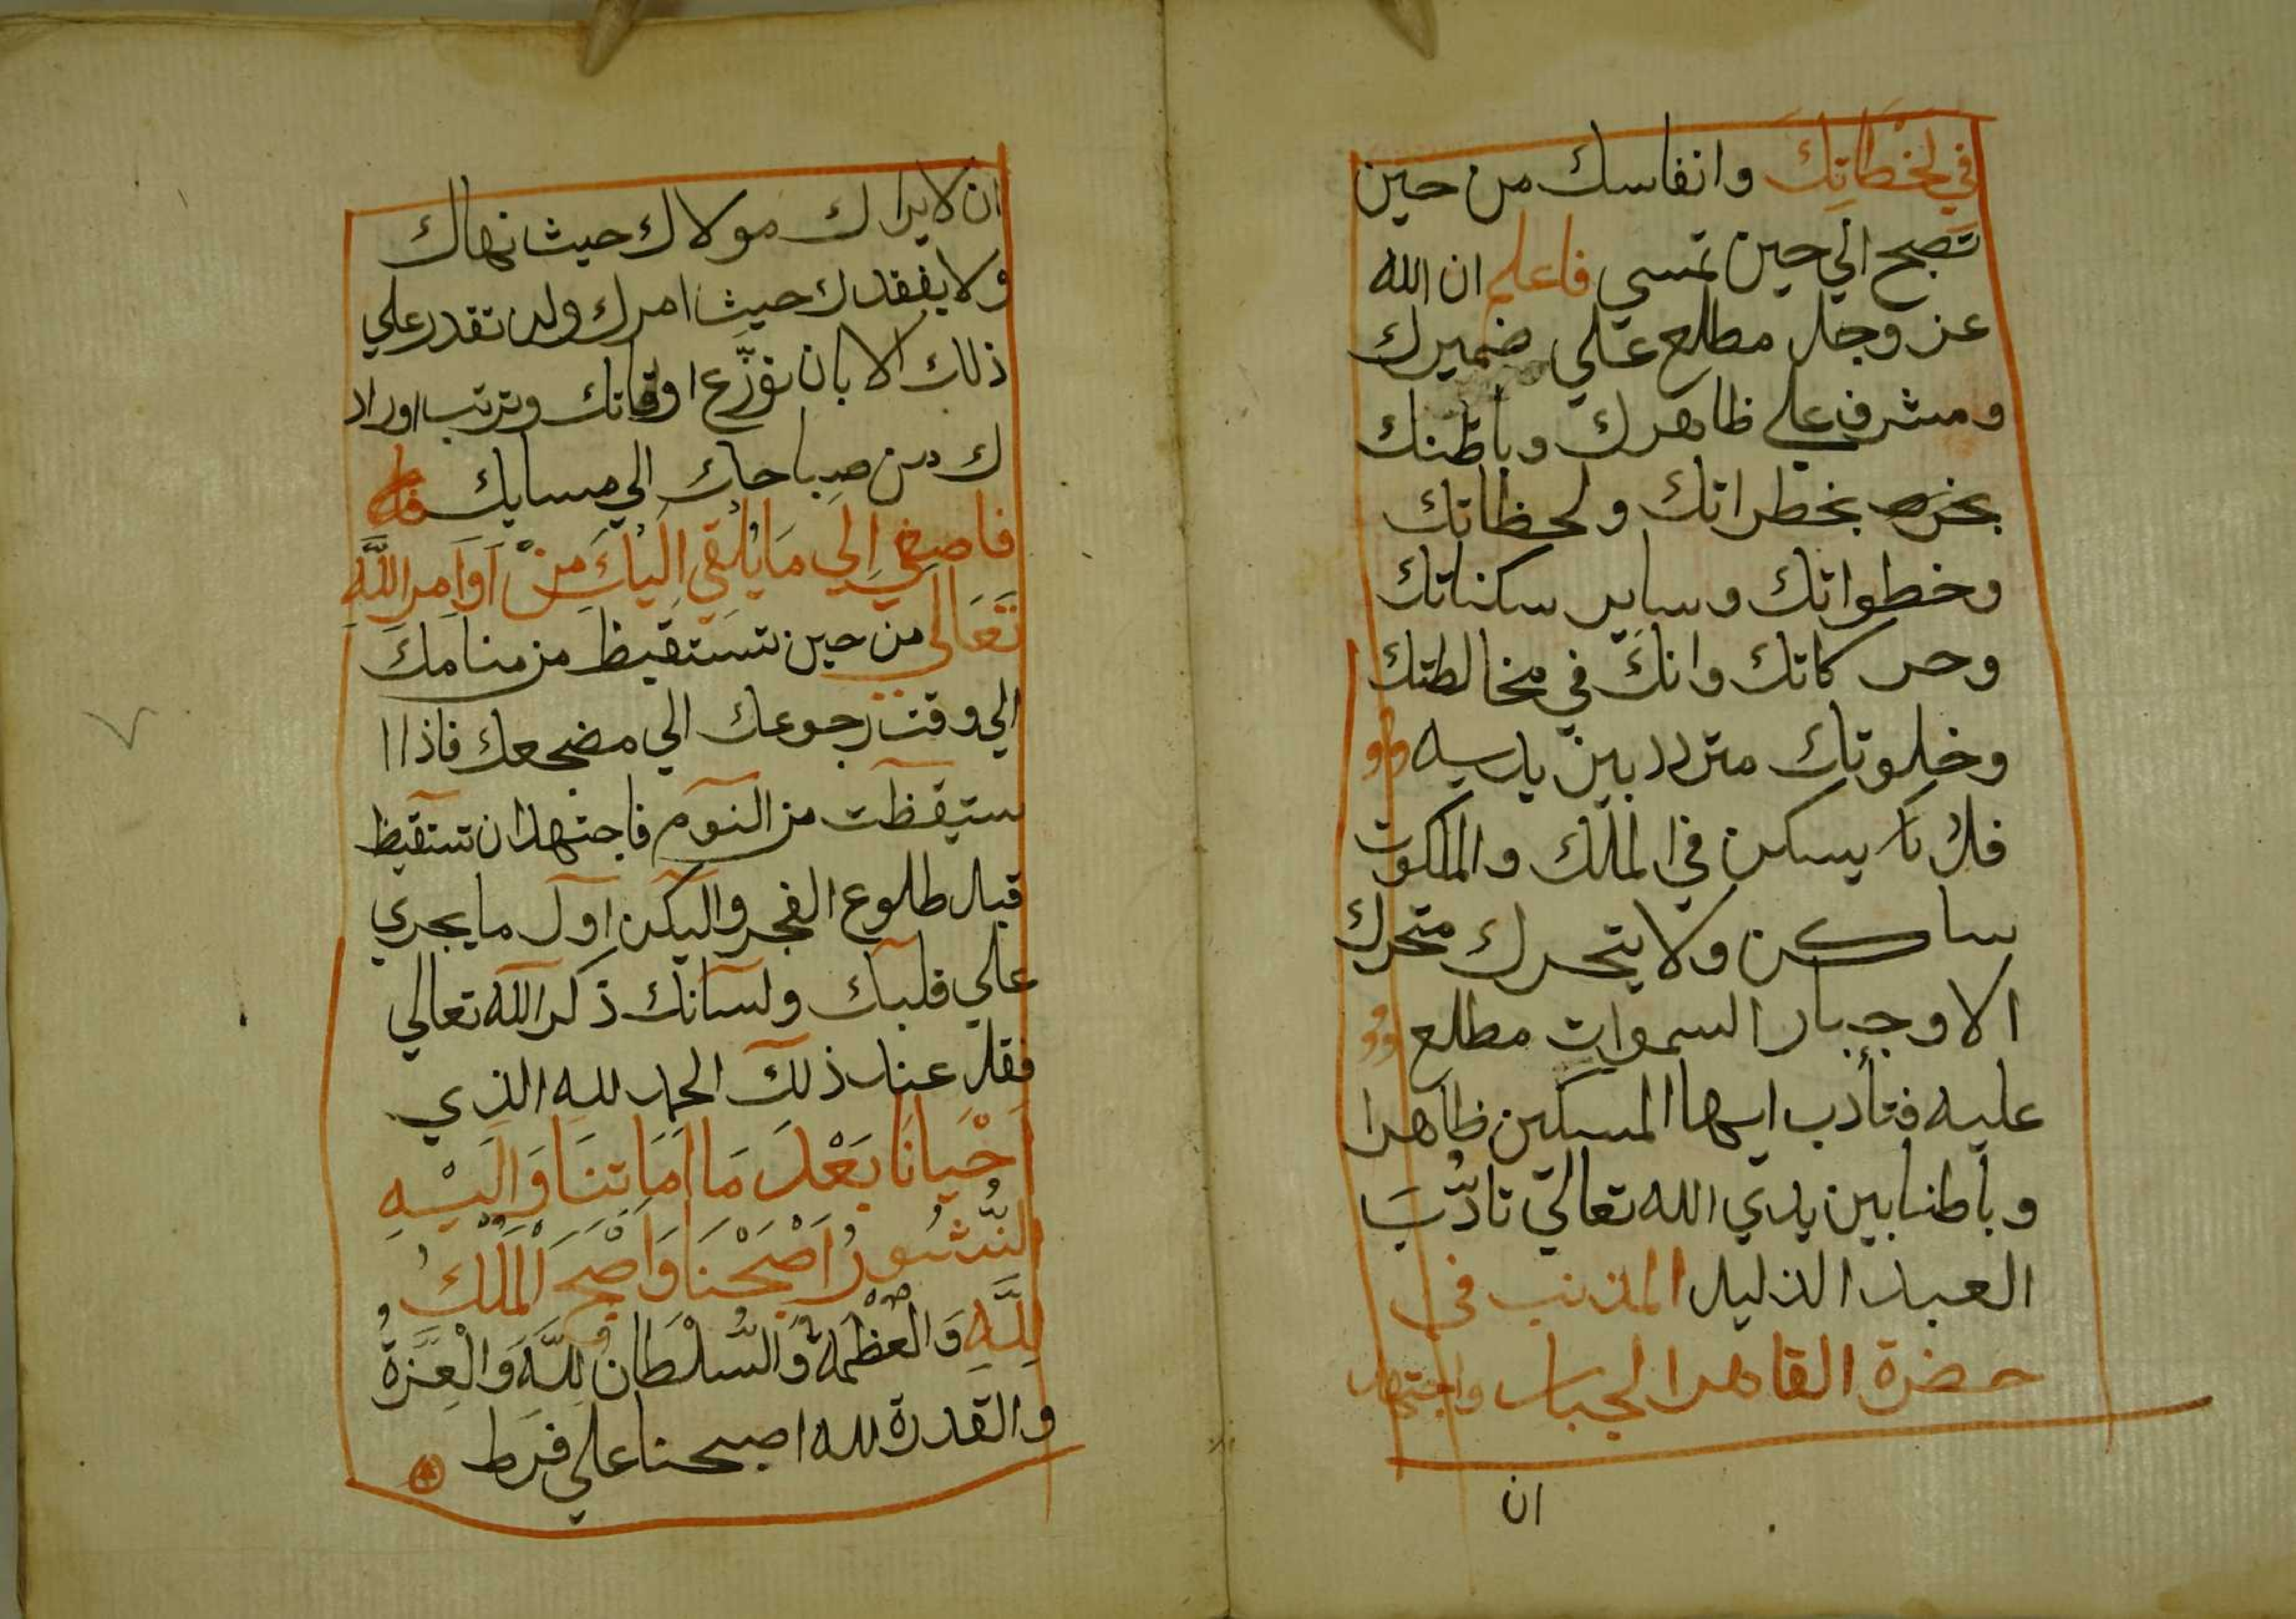 في لحظاتك وانفاسك من حين
تصبح الي حين تمسي فاعلم ان الله
عز وجل مطلع علي ضميرك
ومشرف علي ظاهرك وباطنك
بخطراتك ولحظاتك
وخطواتك وساير سكناتك
وحركاتك وانك في مخالطتك
وخلوتك متردد بين يديه
فلا يسكن في الملك والملكوت
ساكن ولا يتحرك متحرك
الا وجبار السموات مطلع
عليه فتأدب ايها المسكين ظاهرا
وباطنا بين يدي الله تعالي تادّبَ
العبد الذليل المذنب في
حضرة القاهر الجبار واجتهد
ان
ان لا يراك مولاك حيث نهاك
ولا يفقدك حيث امرك ولن تقدر علي
ذلك الا بان توزّع اوقاتك وترتب اوراد
ك من صباحك الي مسايك
فاصغي اِلي مَا يُلْقي اِلَيْكَ مِنْ اَوَامر اللَّهِ
تَعَالَي من حين تستقيظ من منامك
الي وقت رجوعك الي مضجعك فاذا ا
ستيقظت من النوم فاجتهد ان تستقيظ
قبل طلوع الفجر واليكن اول ما يجري
علي قلبك ولسانك ذكر الله تعالي
فقل عند ذلك الحمد لله الذي
اَحْيانَا بَعْدَ مَا اَمَاتنَا وَاِلَيْهِ
النُّشُورُ اَصْبَحْنَا وَاَصْبَحَ الْمُلْكُ
لِلَّهِ وَالْعَظْمَةُ وَالسُّلْطَانُ لِلَّهِ وَالْعِزَّةُ
والقدرة لله اصبحنا علي فرط